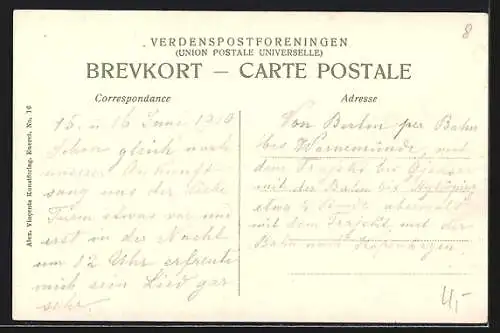 8
VERDENSPOSTFORENINGEN
(UNION POSTALE UNIVERSELLE)
BREVKORT — CARTE POSTALE
Correspondance
Adresse
15. u 16 Juni 1910
Schon gleich nach
unserer Ankunft
sang uns der
Turm etwas vor und
erst in der Nacht
um 12 Uhr erfreute
mich sein Lied gar
sehr.
Von Berlin per Bahn
bis Warnemünde, mit
dem Trajekt bis Gjedser
mit der Bahn bis Nykjöbing
etwa Stunde
mit dem Trajekt, mit der
Bahn nach Kopenhagen.
4,-
Alex. Vincents Kunstforlag, Eneret. No. 16